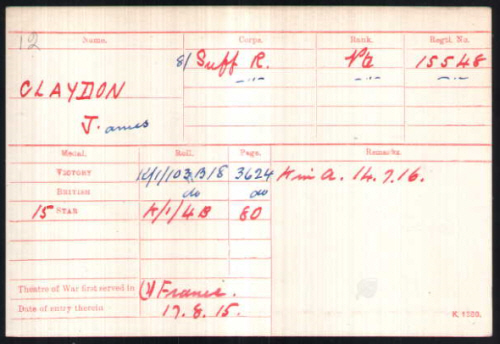 12 Name. Corps. Rank. Regtl. No.
8/ Suff R. Pte 15548
CLAYDON -"- -"- -"-
J. ames
Medal. Roll. Page. Remarks.
VICTORY K/1/103.B18 3624 K in A. 14.7.16.
BRITISH do do
15 STAR K/1/4B 80
Theatre of War first served in (1) France.
Date of entry therein 17.8.15.
K. 1380.